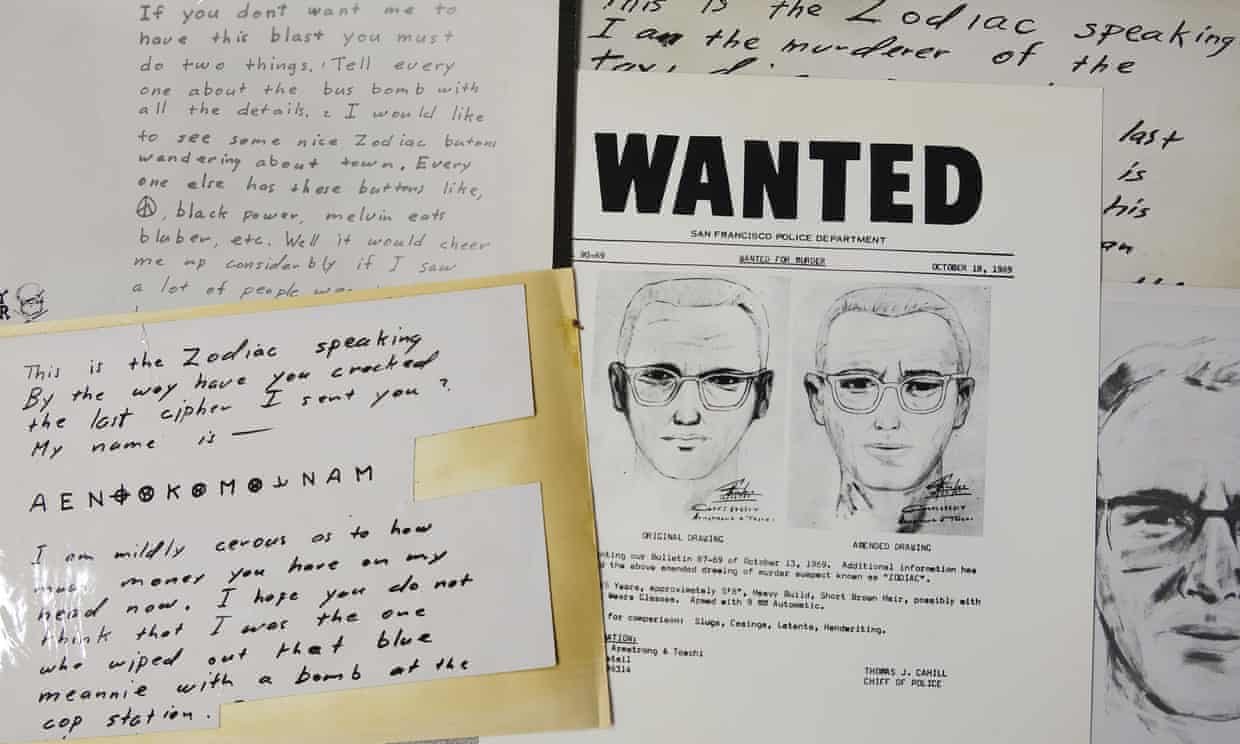 If you dont want me to
have this blast you must
do two things. 1 Tell every
one about the bus bomb with
all the details. 2 I would like
to see some nice Zodiac butons
wandering about town. Every
one else has these buttons like,
☮, black power, melvin eats
bluber, etc. Well it would cheer
me up considerbly if I saw
a lot of people
This is the Zodiac speaking
By the way have you cracked
the last cipher I sent you?
My name is —
A E N ⌖ ⊗ K ⊗ M ⊗ ⅃ N A M
I am mildly cerous as to how
much money you have on my
head now. I hope you do not
think that I was the one
who wiped out that blue
meannie with a bomb at the
cop station.
This is the Zodiac speaking
I am the murderer of the
last
is
his
WANTED
SAN FRANCISCO POLICE DEPARTMENT
90-69 WANTED FOR MURDER OCTOBER 18, 1969
ORIGINAL DRAWING AMENDED DRAWING
our Bulletin 87-69 of October 13, 1969. Additional information has
the above amended drawing of murder suspect known as "ZODIAC".
Years, approximately 5'8", Heavy Build, Short Brown Hair, possibly with
Wears Glasses. Armed with 9 MM Automatic.
for comparison: Slugs, Casings, Latents, Handwriting.
Armstrong & Toschi
THOMAS J. CAHILL
CHIEF OF POLICE